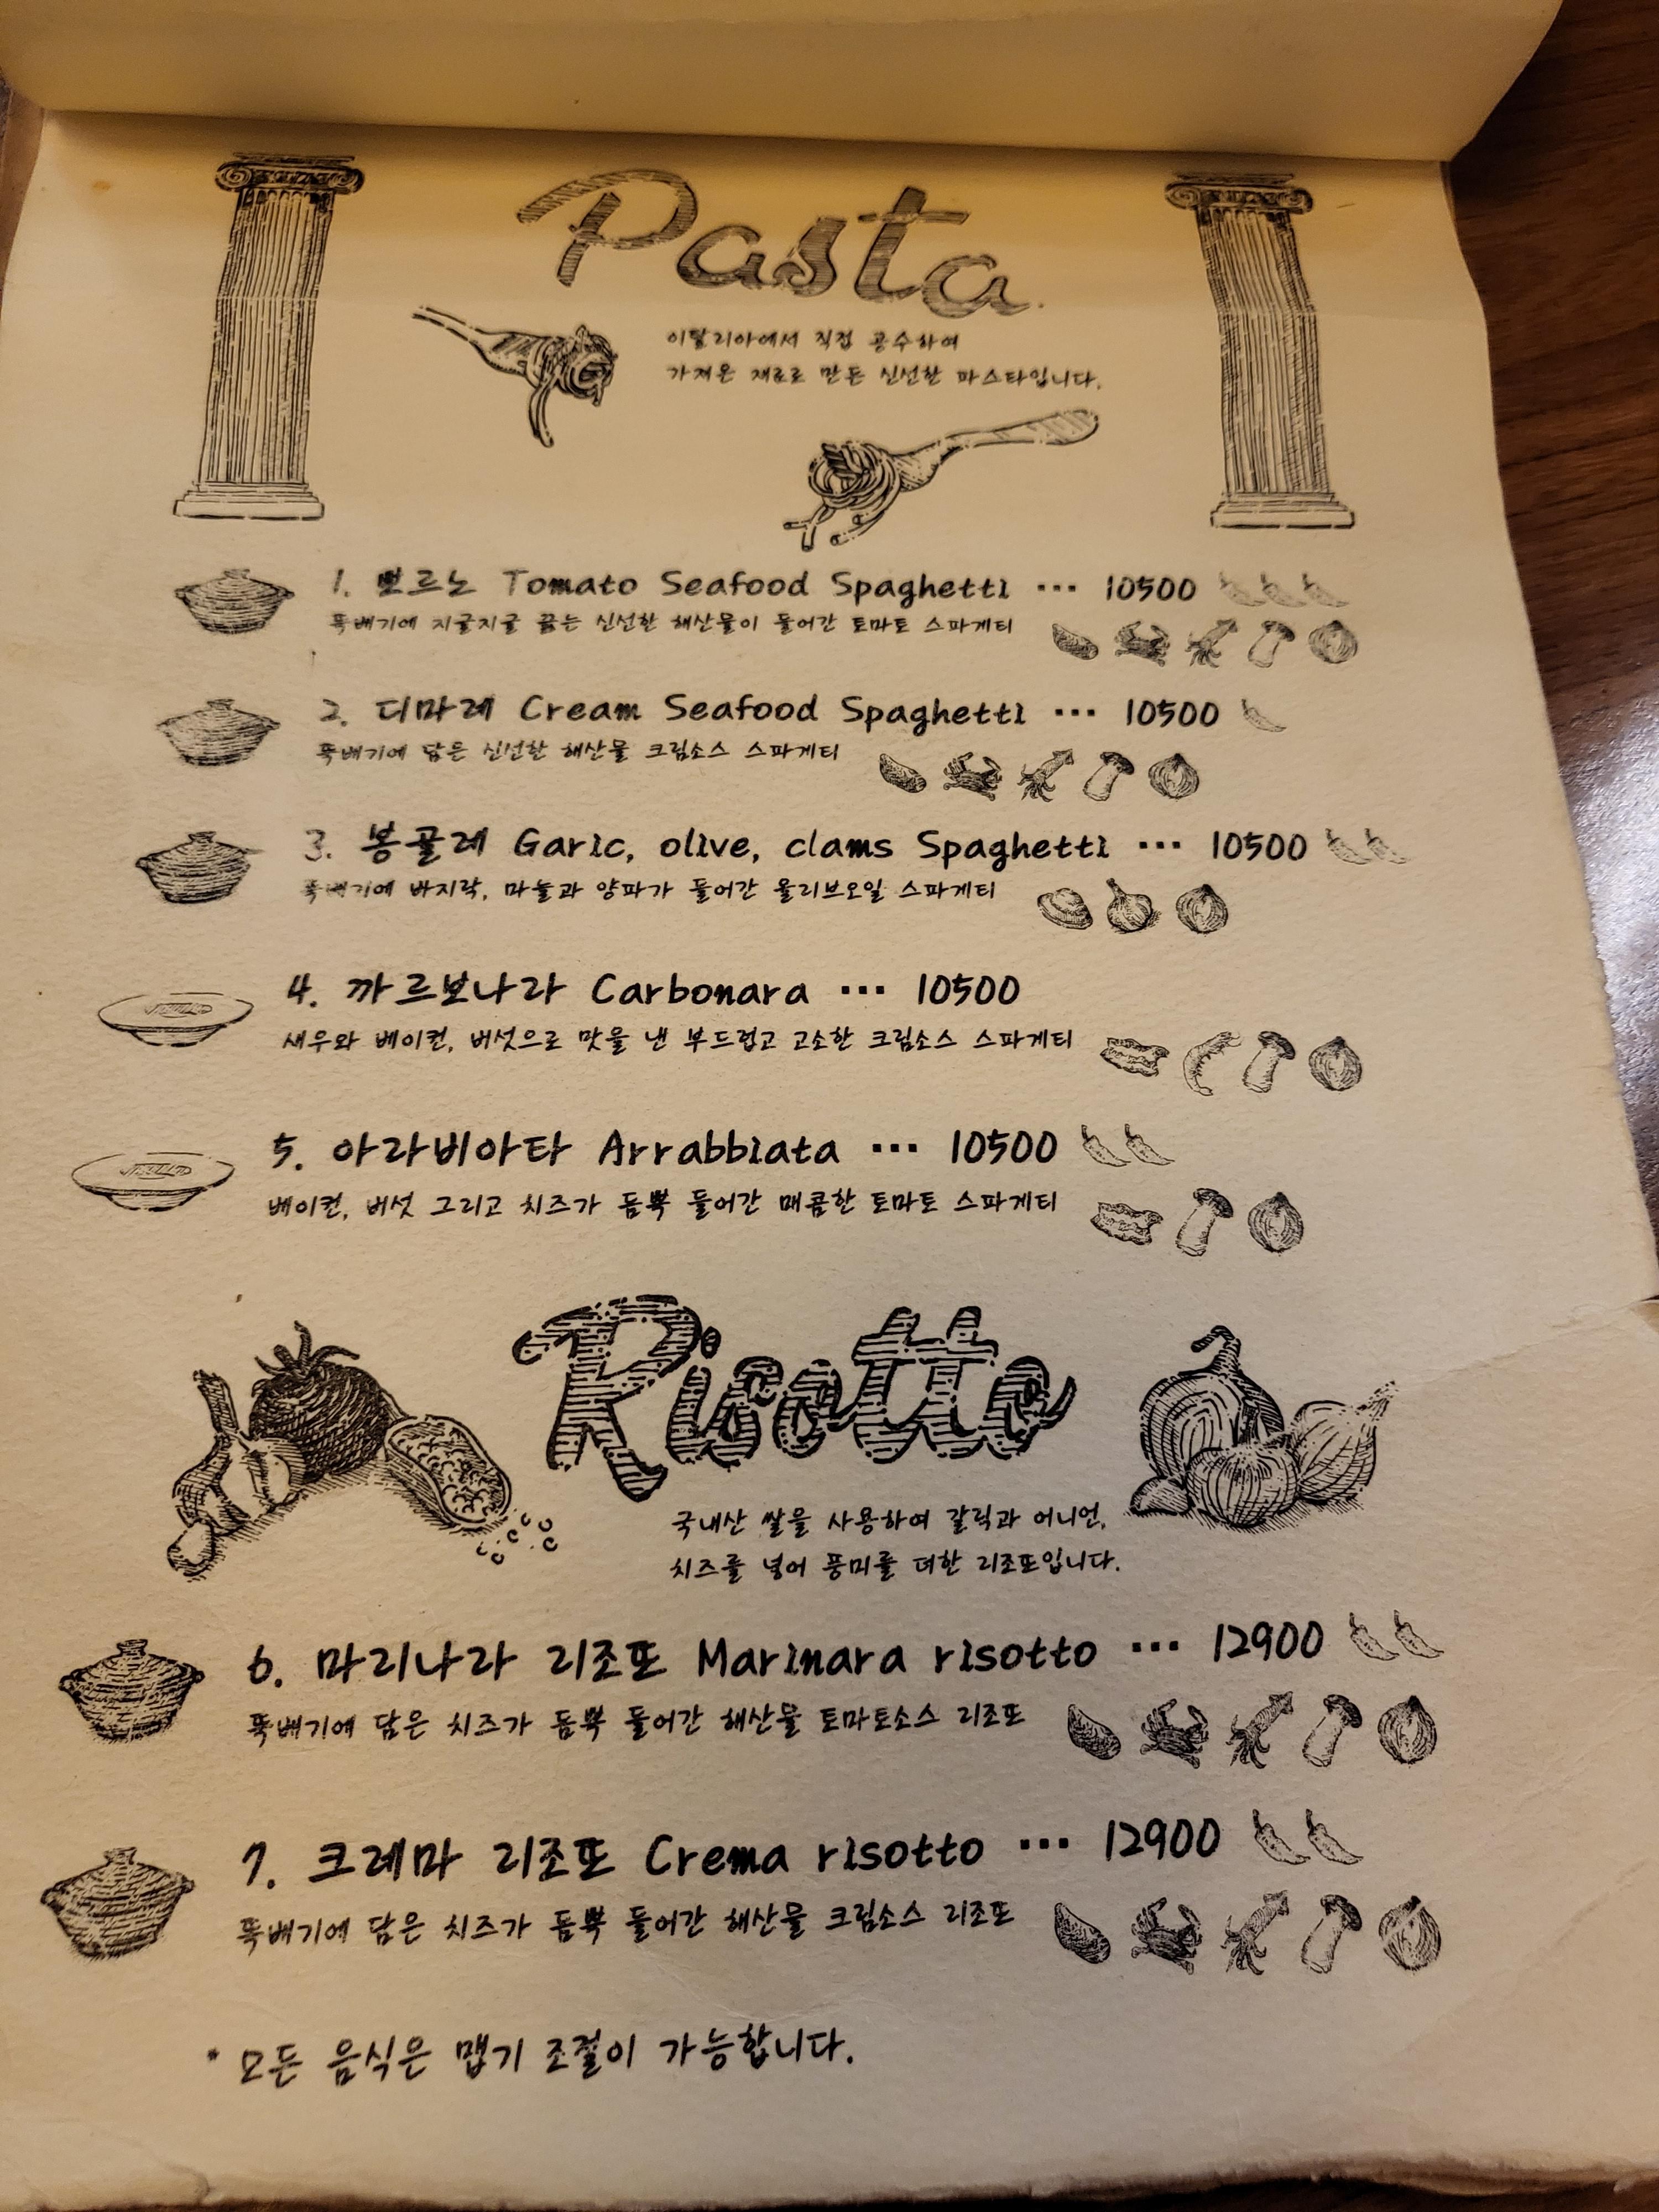 Pasta
이탈리아에서 직접 공수하여
가져온 재료로 만든 신선한 파스타입니다.
1. 뽀르노 Tomato Seafood Spaghetti ... 10500
뚝배기에 지글지글 끓는 신선한 해산물이 들어간 토마토 스파게티
2. 디마레 Cream Seafood Spaghetti ... 10500
뚝배기에 담은 신선한 해산물 크림소스 스파게티
3. 봉골레 Garic, olive, clams Spaghetti ... 10500
뚝배기에 바지락, 마늘과 양파가 들어간 올리브오일 스파게티
4. 까르보나라 Carbonara ... 10500
새우와 베이컨, 버섯으로 맛을 낸 부드럽고 고소한 크림소스 스파게티
5. 아라비아타 Arrabbiata ... 10500
베이컨, 버섯 그리고 치즈가 듬뿍 들어간 매콤한 토마토 스파게티
Risotto
국내산 쌀을 사용하여 갈릭과 어니언,
치즈를 넣어 풍미를 더한 리조또입니다.
6. 마리나라 리조또 Marinara risotto ... 12900
뚝배기에 담은 치즈가 듬뿍 들어간 해산물 토마토소스 리조또
7. 크레마 리조또 Crema risotto ... 12900
뚝배기에 담은 치즈가 듬뿍 들어간 해산물 크림소스 리조또
* 모든 음식은 맵기 조절이 가능합니다.